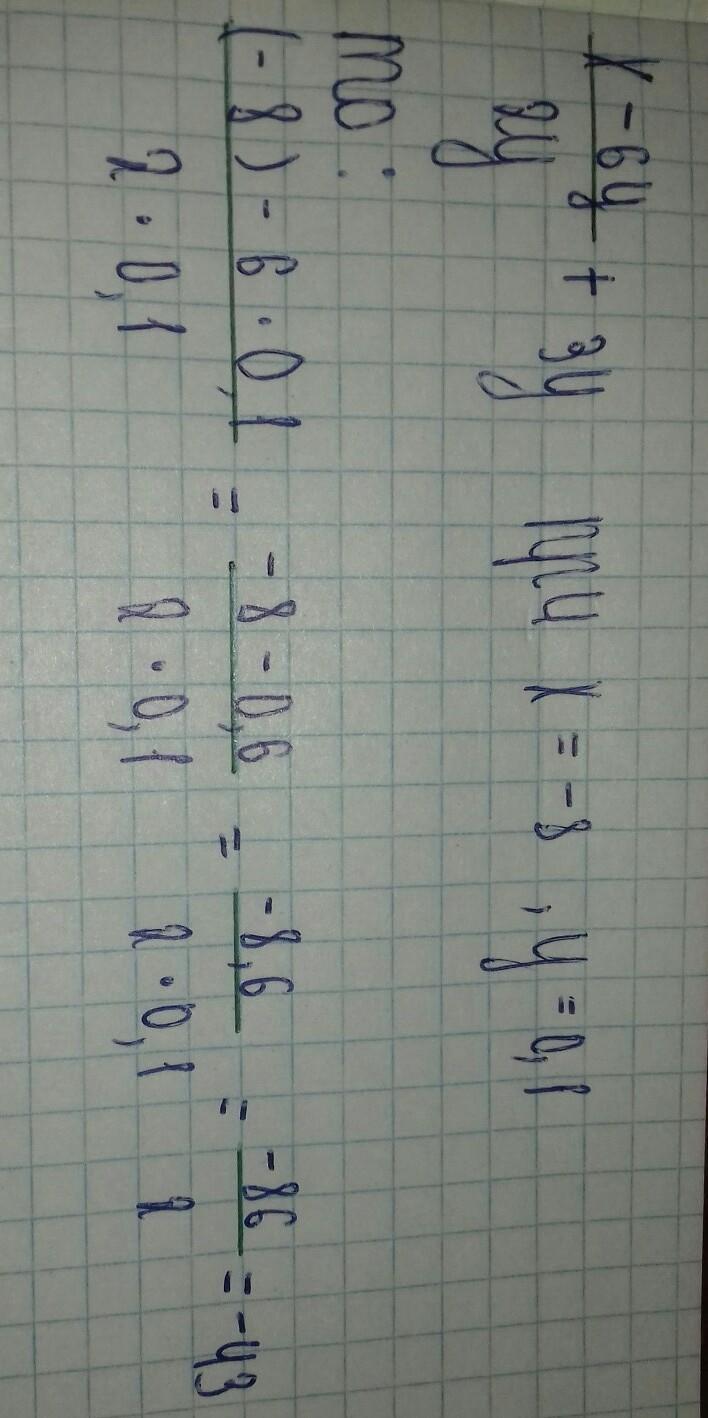 x - 6y / 2y + 3y при x = -8, y = 0,1
то:
(-8) - 6 · 0,1 / 2 · 0,1 = -8 - 0,6 / 2 · 0,1 = -8,6 / 2 · 0,1 = -86 / 2 = -43